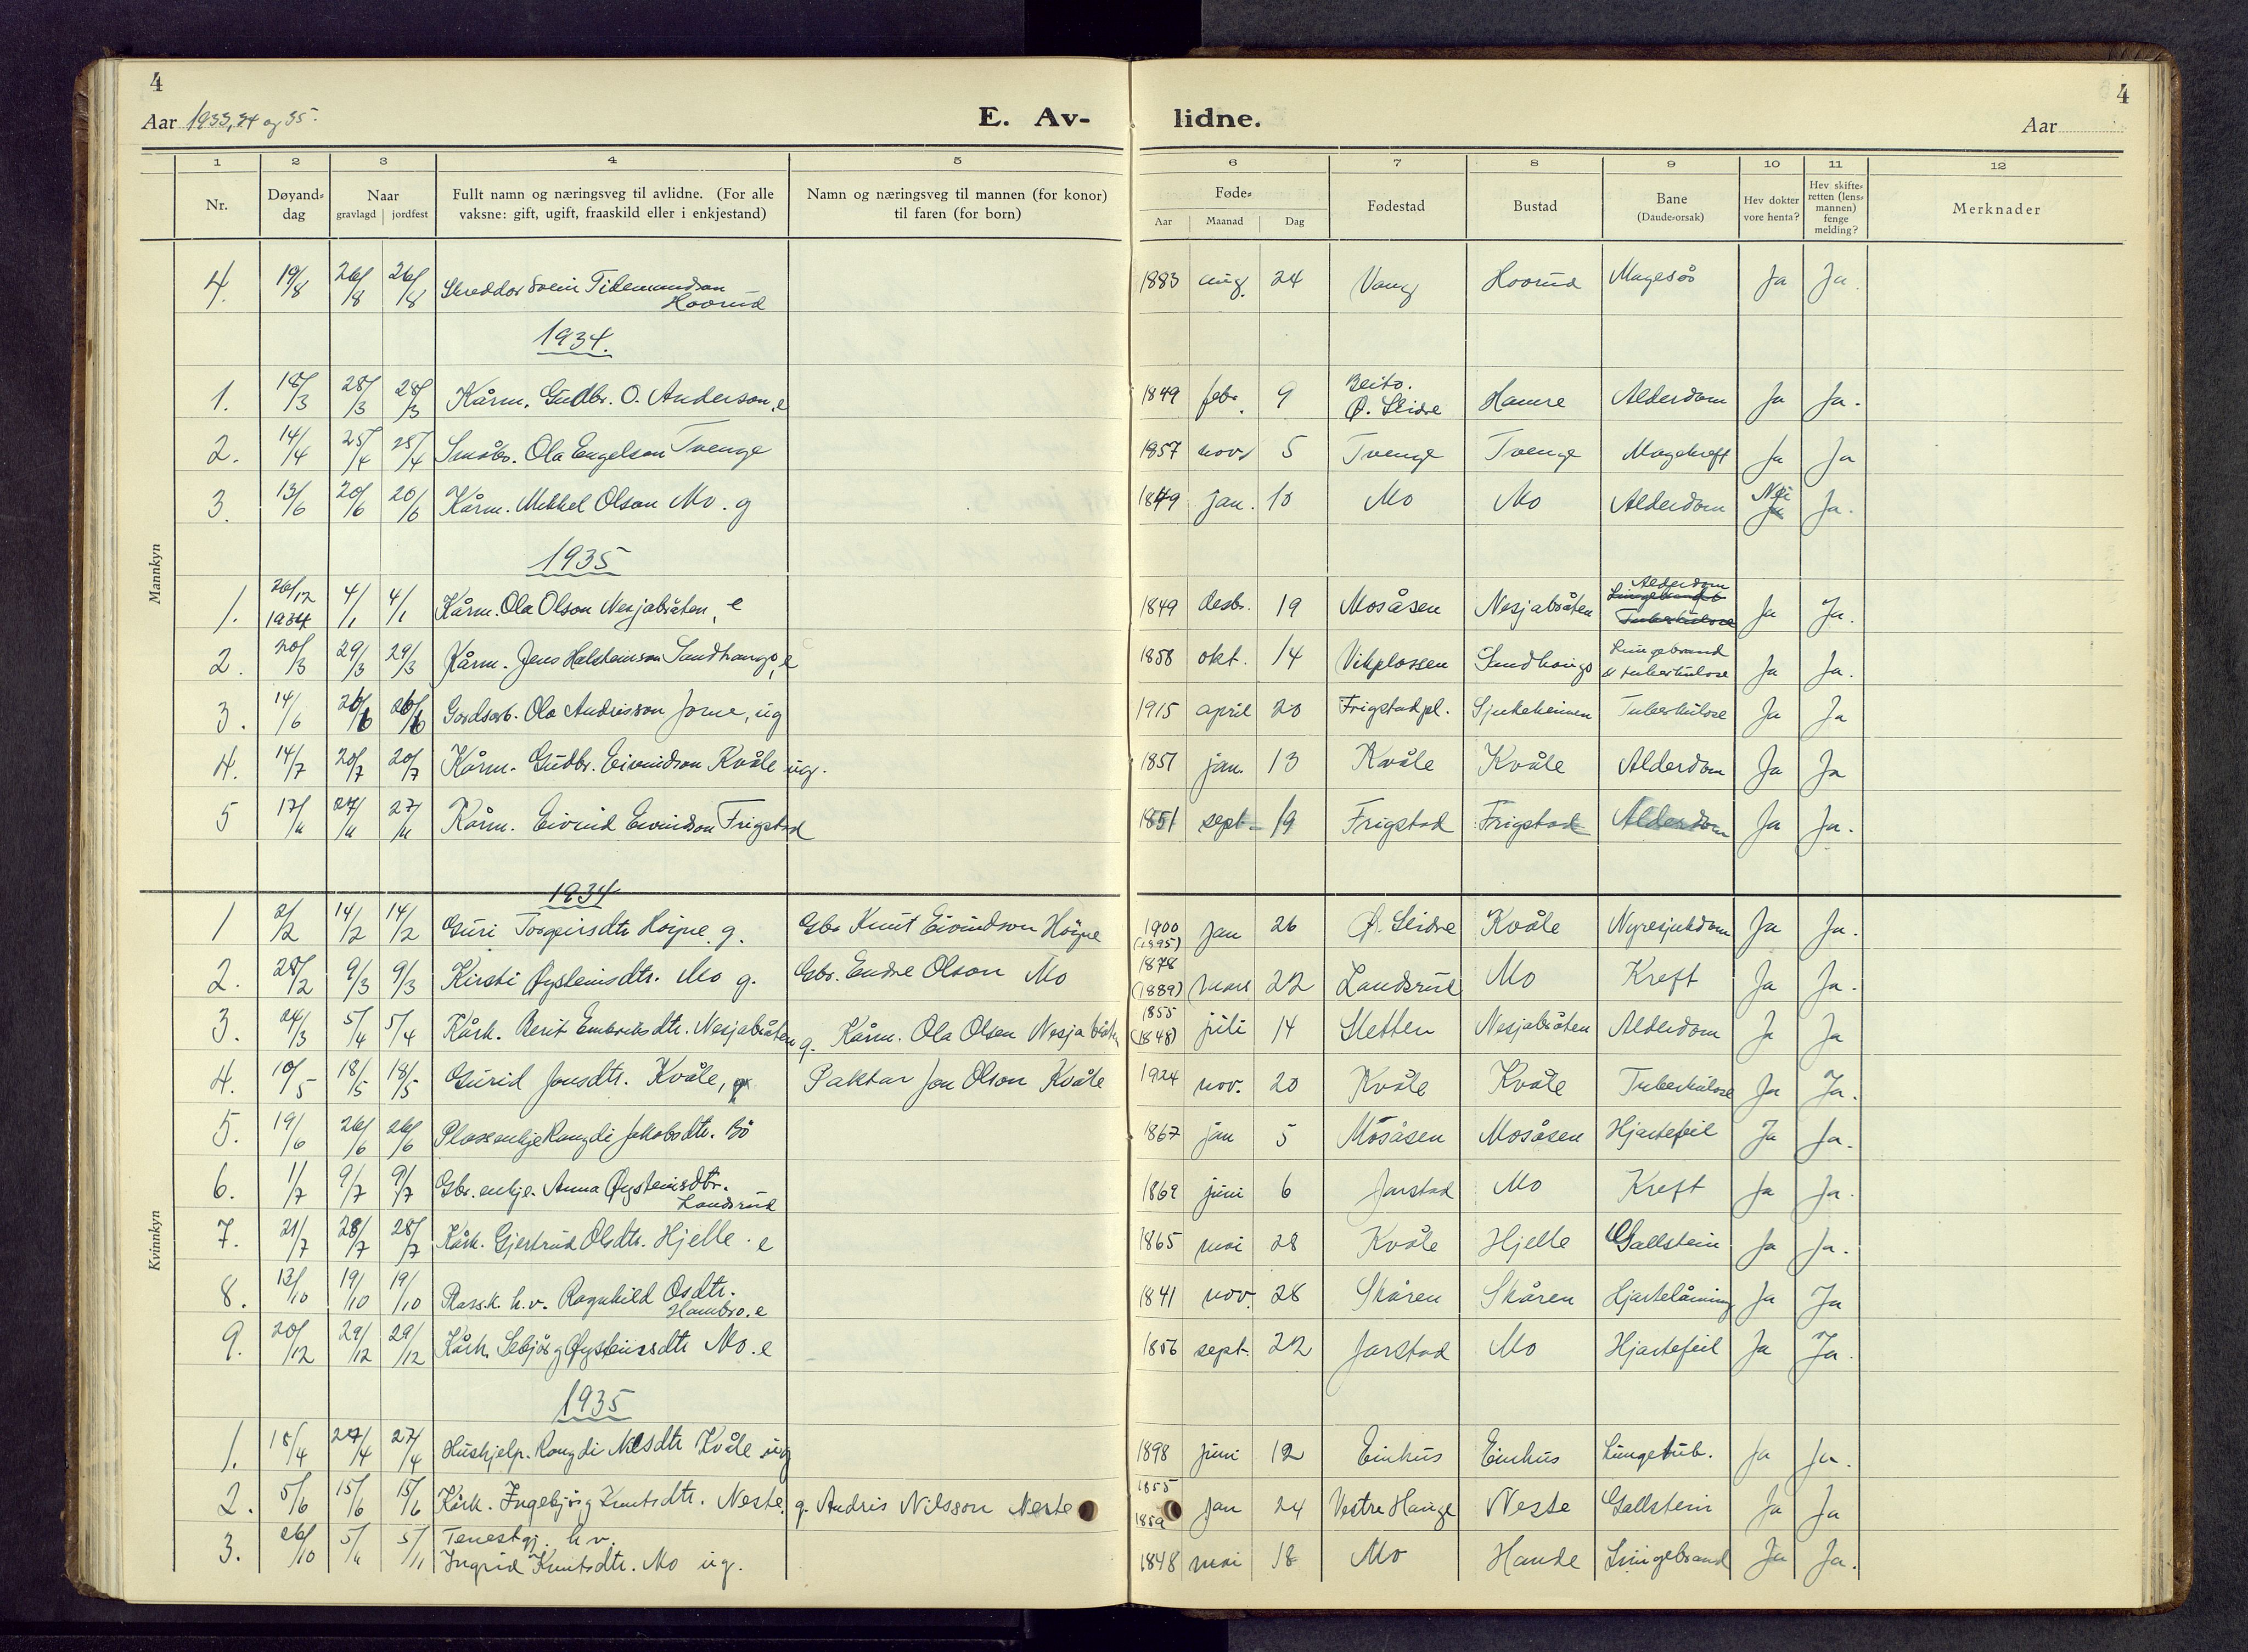 4
4
Aar 1933, 34 og 35.
E. Av-
lidne.
Aar
1 2 3 4 5 6 7 8 9 10 11 12
Nr.
Døyand-
dag
Naar
gravlagd | jordfest
Fullt namn og næringsveg til avlidne. (For alle
vaksne: gift, ugift, fraaskild eller i enkjestand)
Namn og næringsveg til mannen (for konor)
til faren (for born)
Føde-
Aar Maanad Dag
Fødestad
Bustad
Bane
(Daude-orsak)
Hev dokter
vore henta?
Hev skifte-
retten (lens-
mannen)
fenge
melding?
Merknader
Mannkyn
4. 19/8 26/8 26/8 Skreddar Svein Tidemandson Hovrud 1883 aug. 24 Vang Hovrud Magesår Ja Ja.
1934.
1. 18/3 28/3 28/3 Kårm. Gudbr. O. Anderson, e 1849 febr. 9 Beito. Ø. Slidre Hamre Alderdom Ja Ja.
2. 14/4 25/4 25/4 Småbr. Ola Engelson Tvenge 1857 nov. 5 Tvenge Tvenge Magekreft Ja Ja
3. 13/6 20/6 20/6 Kårm. Mikkel Olson Mo. g 1849 jan. 10 Mo Mo Alderdom Nei Ja Ja.
1935
1. 26/12 1934 4/1 4/1 Kårm. Ola Olson Nesjabråten, e 1849 desbr. 19 Mosåsen Nesjabråten Alderdom Tuberkulose Ja Ja.
2. 20/3 29/3 29/3 Kårm. Jens Halsteinson Sandhaugo, e 1858 okt. 14 Vikplassen Sandhaugo Lungebrand & tuberkulose Ja Ja.
3. 14/6 26/6 26/6 Gardsarb. Ola Andrisson Jome, ug 1915 april 20 Frigstadpl. Sjukeheimen Tuberkulose Ja Ja
4. 14/7 20/7 20/7 Kårm. Gudbr. Eivindson Kvåle ug. 1857 jan. 13 Kvåle Kvåle Alderdom Ja Ja
5 17/11 27/11 27/11 Kårm. Eivind Eivindson Frigstad 1851 sept. 19 Frigstad Frigstad Alderdom Ja Ja.
Kvinnkyn
1934
1 2/2 14/2 14/2 Guri Torgeirsdtr Høyne g. Gbr Knut Eivindson Høyne 1900 (1895) jan 26 Ø. Slidre Kvåle Nyresjukdom Ja Ja.
2. 28/2 9/3 9/3 Kirsti Øysteinsdtr. Mo g. Gbr. Endre Olson Mo 1878 (1889) mars 22 Landsrud Mo Kreft Ja Ja.
3. 24/3 5/4 5/4 Kårk. Berit Embriksdtr. Nesjabråten g. Kårm. Ola Olsen Nesjabråten 1855 (1848) juli 14 Sletten Nesjabråten Alderdom Ja Ja
4. 10/5 18/5 18/5 Gurid Jonsdtr. Kvåle, Paktar Jon Olson Kvåle 1924 nov. 20 Kvåle Kvåle Tuberkulose Ja Ja.
5. 19/6 26/6 26/6 Plassenkje Rangdi Jakobsdtr. Bö 1867 jan 5 Mosåsen Mosåsen Hjartefeil Ja Ja.
6. 1/7 9/7 9/7 Gbr. enkje. Anna Øysteinsdtr. Landsrud 1869 juni 6 Jarstad Mo Kreft Ja Ja.
7. 21/7 28/7 28/7 Kårk. Gjertrud Olsdtr. Hjelle. e 1865 mai 28 Kvåle Hjelle Gallstein Ja Ja.
8. 13/10 19/10 19/10 Plassk. h.v. Ragnhild Osdtr. Hambro. e 1841 nov. 28 Skåren Skåren Hjartelåming Ja Ja
9. 20/12 29/12 29/12 Kårk. Sebjörg Øysteinsdtr Mo. e 1856 sept. 22 Jarstad Mo Hjartefeil Ja Ja.
1935
1. 18/4 27/4 27/4 Hushjelp. Rangdi Nilsdtr Kvåle ug 1898 juni 12 Einhus Einhus Lungetub. Ja Ja.
2. 5/6 15/6 15/6 Kårk. Ingebjörg Knutsdtr. Neste. g. Andris Nilsson Neste 1855 1859 jan 24 Vestre Hauge Neste Gallstein Ja Ja
3. 26/10 5/11 5/11 Tenestgj. h.v.
Ingrid Knutsdtr. Mo ug. 1848 mai 18 Mo Hande Lungebrand Ja Ja.